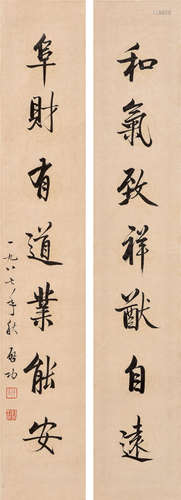 和氣致祥猷自遠
阜財有道業能安
一九八七年秋 啟功